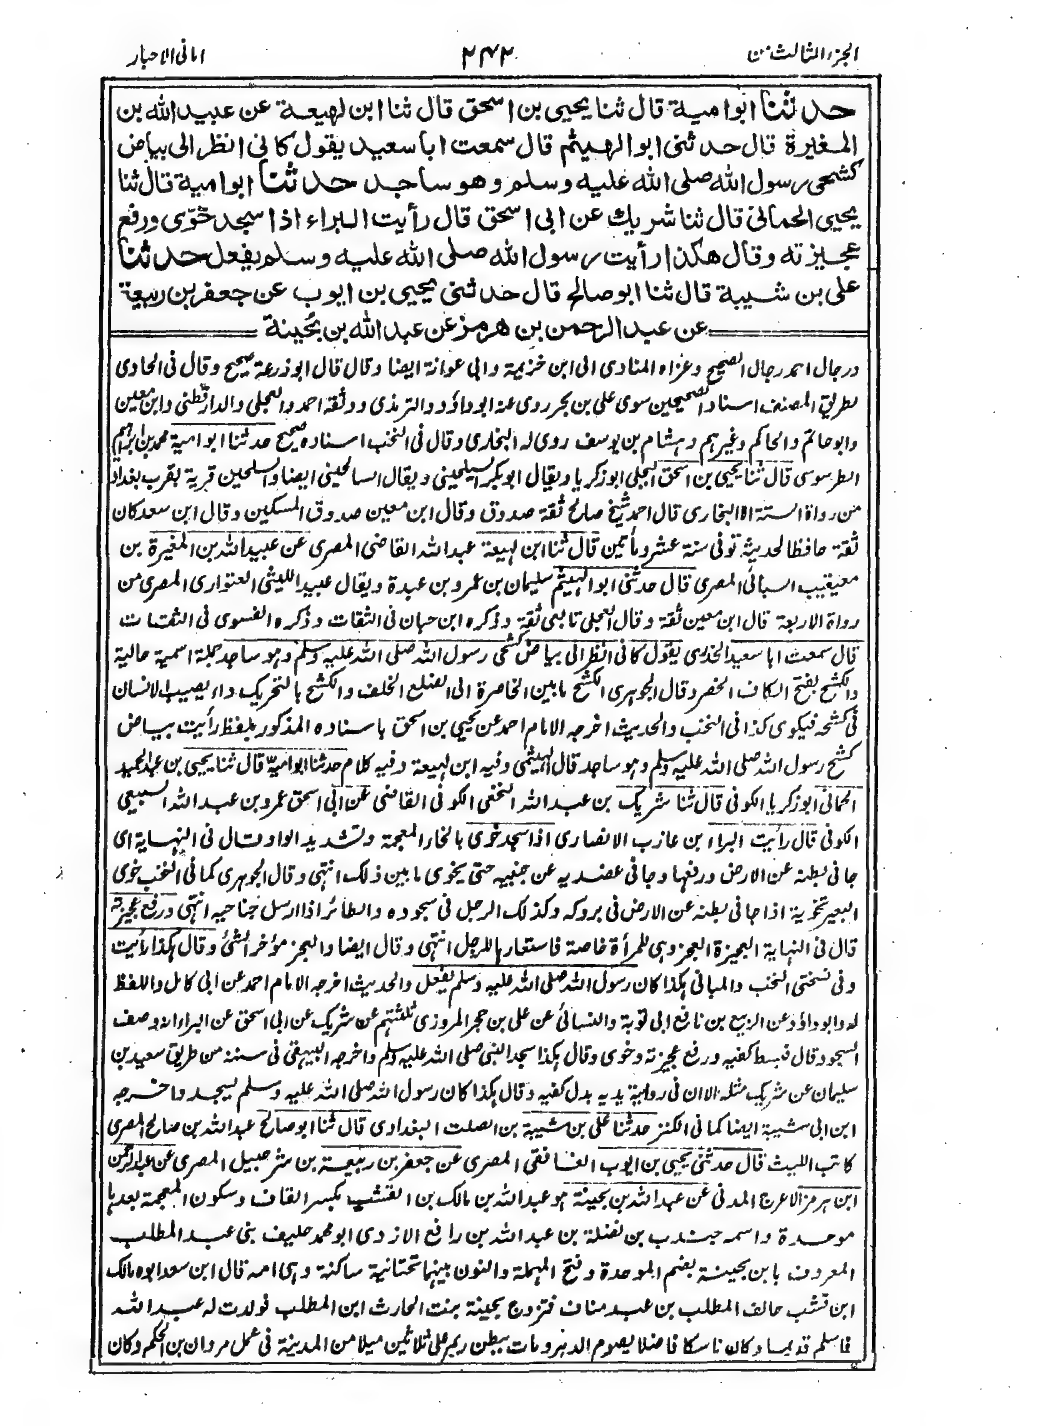 الجزء الثالث من
٢٤٢
امانى الاحبار
حدثنا ابوامية قال ثنا يحيى بن اسحق قال ثنا ابن لهيعة عن عبيدالله بن
المغيرة قال حدثنى ابوالهيثم قال سمعت اباسعيد يقول كانى انظر الى بياض
كشحى رسول الله صلى الله عليه وسلم وهو ساجد حدثنا ابوامية قال ثنا
يحيى الحمانى قال ثنا شريك عن ابى اسحق قال رأيت البراء اذا سجد خوّى ورفع
عجيزته وقال هكذا رأيت رسول الله صلى الله عليه وسلم يفعل حدثنا
على بن شيبة قال ثنا ابوصالح قال حدثنى يحيى بن ايوب عن جعفر بن ربيعة
عن عبد الرحمن بن هرمز عن عبد الله بن بُحينة
ورجال احمد رجال الصحيح وعزاه المنادى الى ابن خزيمة وابى عوانة ايضا وقال قال ابوزرعة صحيح وقال فى الحاوى
لطريق المصنف اسناد الصحيحين سوى على بن بحر روى عنه ابوداؤد والترمذى ووثقه احمد والعجلى والدارقطنى وابن معين
وابوحاتم والحاكم وغيرهم وهشام بن يوسف روى له البخارى وقال فى النخب اسناده صحيح حدثنا ابوامية محمد بن ابراهيم
الطرسوسى قال ثنا يحيى بن اسحق البجلى ابوزكريا ويقال ابوبكر السيلحينى ويقال السالحينى ايضا والسيلحين قرية بقرب بغداد
من رواة الستة الا البخارى قال احمد شيخ صالح ثقة صدوق وقال ابن معين صدوق المسكين وقال ابن سعد كان
ثقة حافظا لحديثه توفى سنة عشر ومأتين قال ثنا ابن لهيعة عبد الله القاضى المصرى عن عبيدالله بن المغيرة بن
معيقيب السبائى المصرى قال حدثنى ابوالهيثم سليمان بن عمرو بن عبدة ويقال عبيد الليثى العتوارى المصرى من
رواة الاربعة قال ابن معين ثقة وقال العجلى تابعى ثقة وذكره ابن حبان فى الثقات وذكره الفسوى فى الثقات
قال سمعت ابا سعيد الخدرى يقول كانى انظر الى بياض كشحى رسول الله صلى الله عليه وسلم وهو ساجد جملة اسمية حالية
والكشح بفتح الكاف الخصر وقال الجوهرى الكشح ما بين الخاصرة الى الضلع الخلف والكشح بالتحريك داء يصيب الانسان
فى كشحه فيكوى كذا فى النخب والحديث اخرجه الامام احمد عن يحيى بن اسحق باسناده المذكور بلفظ رأيت بياض
كشح رسول الله صلى الله عليه وسلم وهو ساجد قال الهيثمى وفيه ابن لهيعة وفيه كلام حدثنا ابوامية قال ثنا يحيى بن عبد الحميد
الحمانى ابوزكريا الكوفى قال ثنا شريك بن عبد الله النخعى الكوفى القاضى عن ابى اسحق عمرو بن عبد الله السبيعى
الكوفى قال رأيت البراء بن عازب الانصارى اذا سجد خوى بالخاء المعجمة وتشديد الواو قال فى النهاية اى
جافى بطنه عن الارض ورفعها وجافى عضديه عن جنبيه حتى يخوى ما بين ذلك انتهى وقال الجوهرى كما فى النخب خوى
البعير تخوية اذا جافى بطنه عن الارض فى بروكه وكذلك الرجل فى سجوده والطائر اذا ارسل جناحيه انتهى ورفع عجيزته
قال فى النهاية العجيزة العجز وهى للمرأة خاصة فاستعارها للرجل انتهى وقال ايضا والعجز مؤخر الشئ وقال هكذا رأيت
وفى نسختى النخب والمبانى هكذا كان رسول الله صلى الله عليه وسلم يفعل والحديث اخرجه الامام احمد عن ابى كامل واللفظ
له وابوداؤد عن الربيع بن نافع ابى توبة والنسائى عن على بن حجر المروزى ثلثتهم عن شريك عن ابى اسحق عن البراء انه وصف
السجود قال فبسط كفيه ورفع عجيزته وخوى وقال هكذا سجد النبى صلى الله عليه وسلم واخرجه البيهقى فى سننه من طريق سعيد بن
سليمان عن شريك مثله الا ان فى رواية يديه بدل كفيه وقال هكذا كان رسول الله صلى الله عليه وسلم يسجد واخرجه
ابن ابى شيبة ايضا كما فى الكنز حدثنا على بن شيبة بن الصلت البغدادى قال ثنا ابوصالح عبدالله بن صالح المصرى
كاتب الليث قال حدثنى يحيى بن ايوب الغافقى المصرى عن جعفر بن ربيعة بن شرحبيل المصرى عن عبدالرحمن
ابن هرمز الاعرج المدنى عن عبد الله بن بحينة هو عبد الله بن مالك بن القشب بكسر القاف وسكون المعجمة بعدها
موحدة واسمه جندب بن نضلة بن عبد الله بن رافع الازدى ابو محمد حليف بنى عبد المطلب
المعروف بابن بحينة بضم الموحدة وفتح المهملة والنون بينهما تحتانية ساكنة وهى امه قال ابن سعد ابوه مالك
ابن قشب حالف المطلب بن عبد مناف فتزوج بحينة بنت الحارث ابن المطلب فولدت له عبد الله
فاسلم قديما وكان ناسكا فاضلا يصوم الدهر ومات ببطن ريم على ثلاثين ميلا من المدينة فى عمل مروان بن الحكم وكان